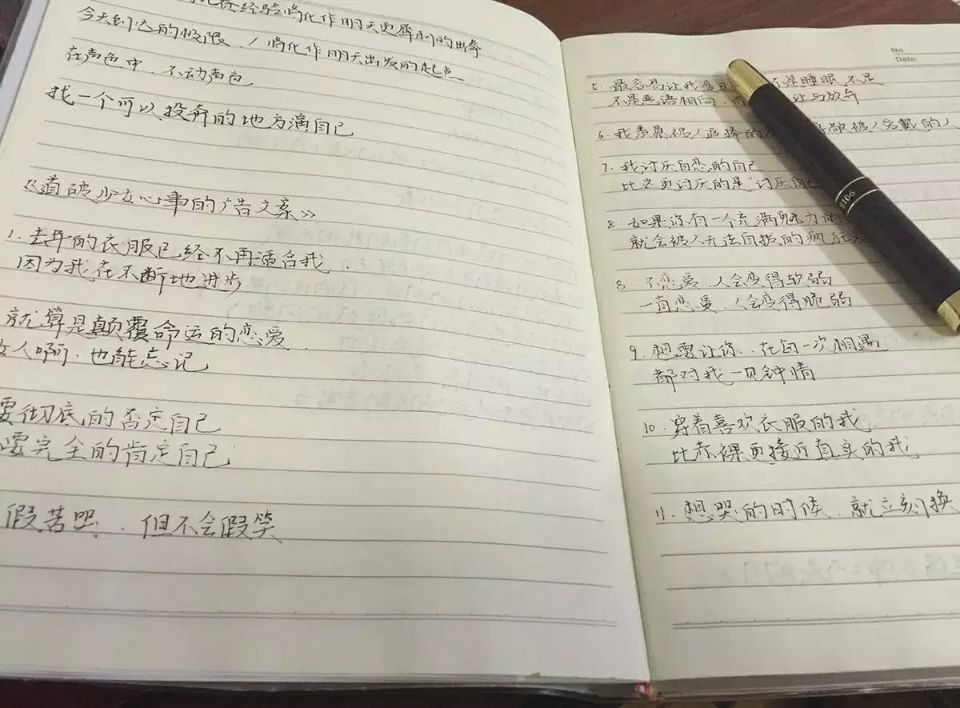 经验消化作明天更犀利的出击
今天到达的极限，消化作明天出发的起点
在声色中，不动声色
找一个可以投奔的地方滴自己
《道破少女心事的广告文案》
1. 去年的衣服已经不再适合我，
因为我在不断地进步
就算是颠覆命运的恋爱
女人啊，也能忘记
要彻底的否定自己
要完全的肯定自己
假苦哭，但不会假笑
No
Date
5. 最容易让我 睡眠不足
不是恶语相向， 让与放弃
6. 我羡慕被人 被人爱戴的人
7. 我讨厌自恋的自己
比这更讨厌的是 讨厌自己
8. 如果你有一个充满魅力的
就会被人无法自拔的疯狂
8. 不恋爱，人会变得软弱
一直恋爱，人会变得脆弱
9. 想要让你，在每一次相遇
都对我一见钟情
10. 穿着喜欢衣服的我
比赤裸更接近真实的我
11. 想哭的时候，就立刻换
9016